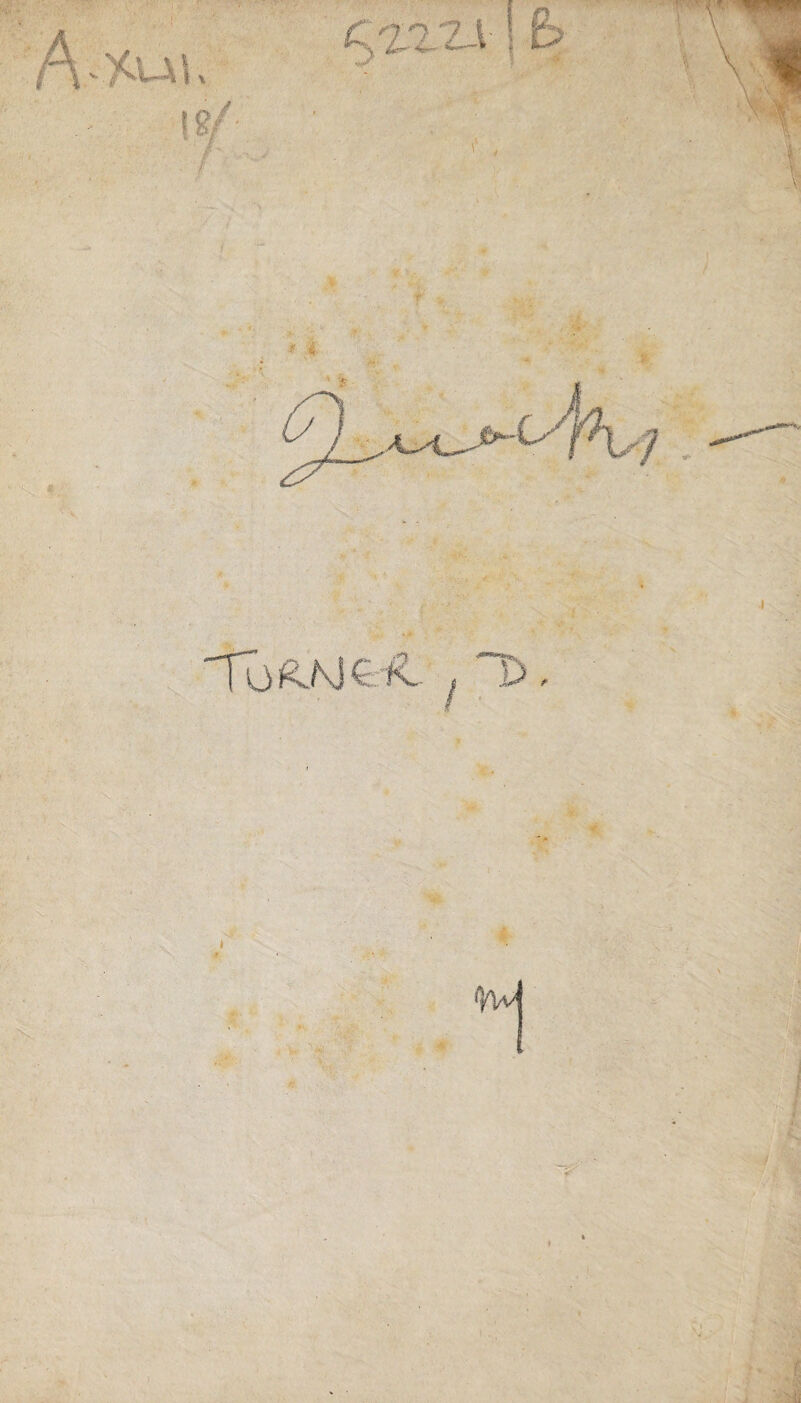 52221 | B
A. XLII.
18/
Quacks. —
TURNER, D.